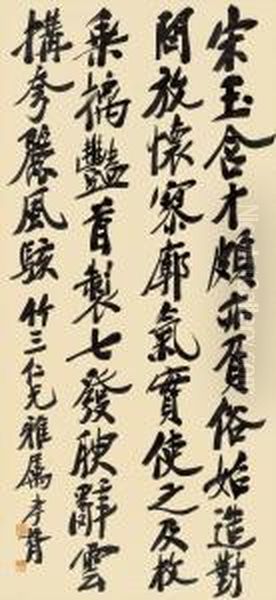 宋玉含才頗亦負俗始造對
問放懷寥廓氣實使之及枚
乘摛豔首製七發腴辭雲
搆夸麗風駭竹三仁兄雅属李